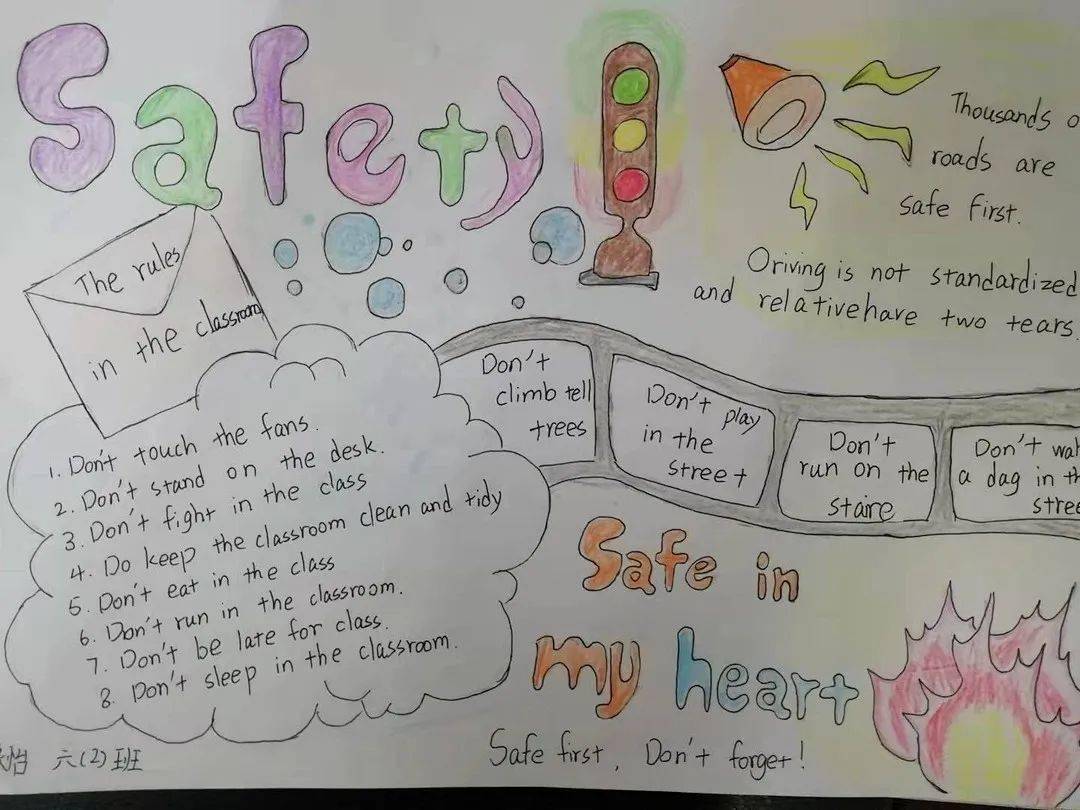 Safety!
Thousands o
roads are
safe first.
Oriving is not standardized
and relativehave two tears.
The rules
in the classroom
1. Don't touch the fans.
2. Don't stand on the desk.
3. Don't fight in the class
4. Do keep the classroom clean and tidy
5. Don't eat in the class
6. Don't run in the classroom.
7. Don't be late for class.
8. Don't sleep in the classroom.
Don't
climb tell
trees
Don't play
in the
street
Don't
run on the
staire
Don't wal
a dag in th
stree
Safe in
my heart
Safe first, Don't forget!
怡 六(2)班